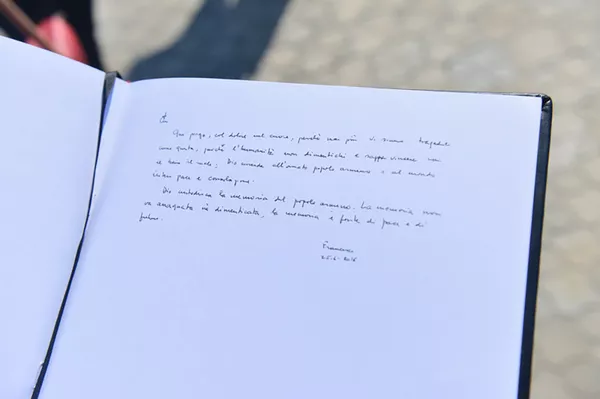 Qui prego, col dolore nel cuore, perché mai più vi siano tragedie
come questa, perché l'umanità non dimentichi e sappia vincere con
il bene il male; Dio conceda all'amato popolo armeno e al mondo
intero pace e consolazione.
Dio custodisca la memoria del popolo armeno. La memoria non
va annacquata né dimenticata, la memoria è fonte di pace e di
futuro.
Francesco
25.6.2016